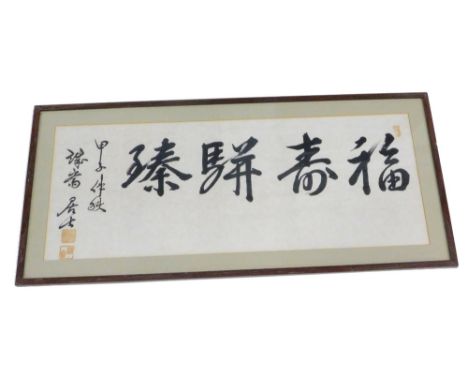 福寿駢臻
甲子仲秋
居士